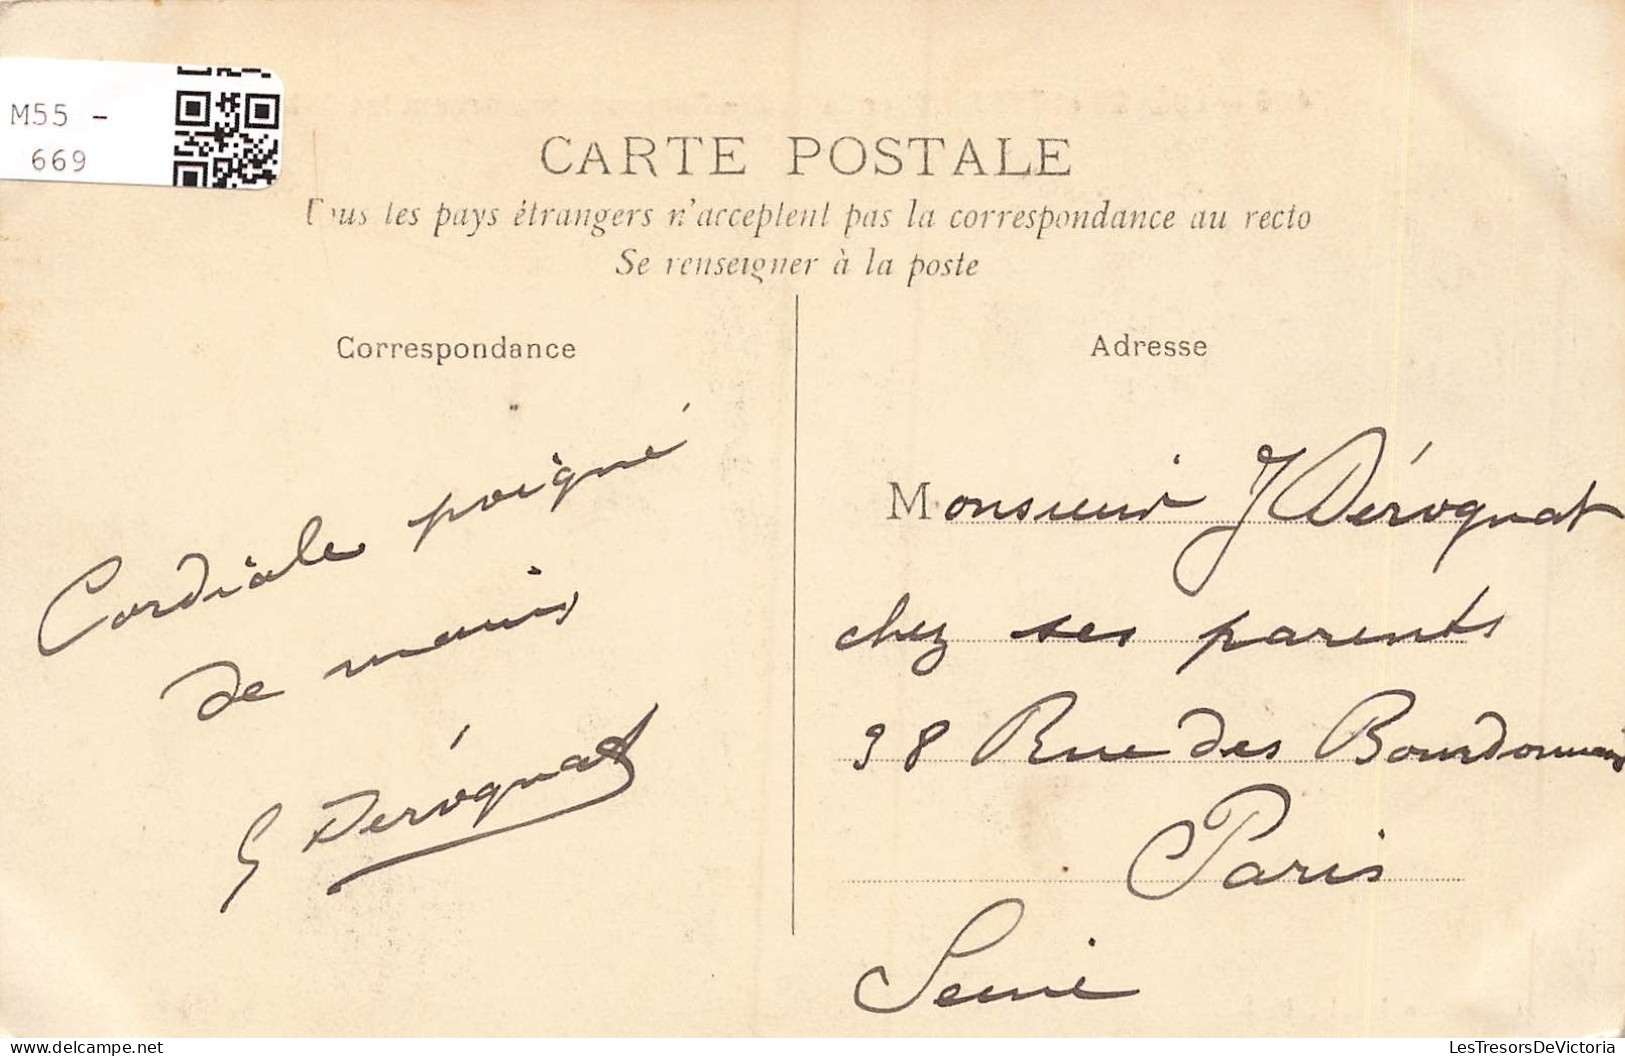 M55 -
669
CARTE POSTALE
Tous les pays étrangers n'acceptent pas la correspondance au recto
Se renseigner à la poste
Correspondance
Cordiale poigné
de mains
G Dérognat
Adresse
Monsieur J Dérognat
chez ses parents
38 Rue des Bourdonnais
Paris
Seine
LesTresorsDeVictoria
www.delcampe.net